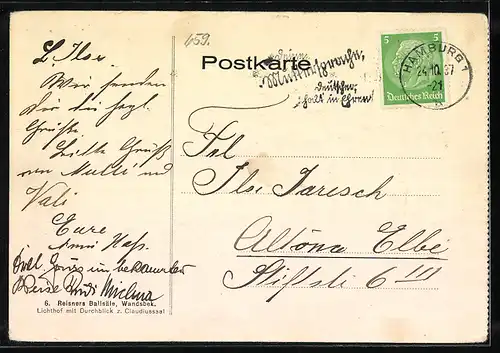 459.
L. Ilse
Wir senden
Dir die herzl.
Grüße
Mutti und
Vati
Eure
Anni Haß.
6. Reisners Ballsäle, Wandsbek.
Lichthof mit Durchblick z. Claudiussaal
Postkarte
Deine
Muttersprache,
deutscher,
halt in Ehren!
HAMBURG 1
24.10.37
21
5 5
Deutsches Reich
Frl.
Ilse Jaresch
Altona Elbe
Stiftstr. 6 III